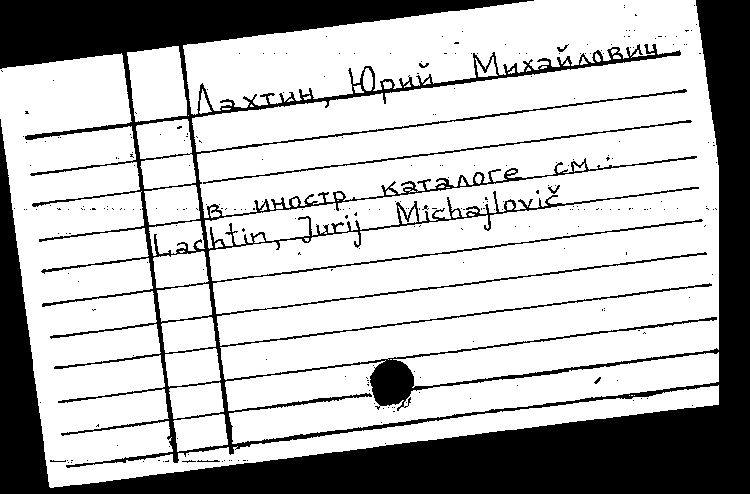 Лахтин, Юрий Михайлович
в иностр. каталоге см.:
Lachtin, Jurij Michajlovič